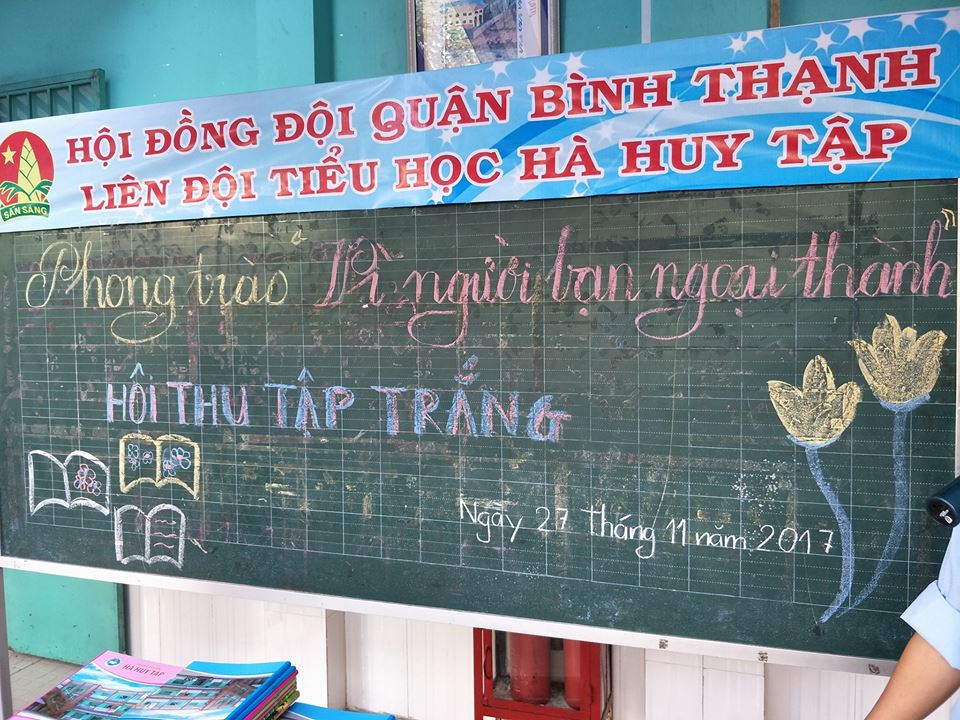 HỘI ĐỒNG ĐỘI QUẬN BÌNH THẠNH
LIÊN ĐỘI TIỂU HỌC HÀ HUY TẬP
SẴN SÀNG
Phong trào "Vì người bạn ngoại thành"
HÔI THU TẬP TRẮNG
Ngày 27 tháng 11 năm 2017
HÀ HUY TẬP